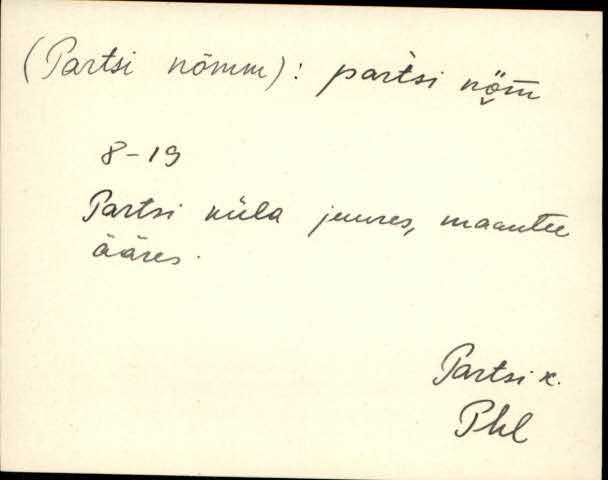 (Partsi nõmm): pàrtsi nö̬m̅
8-19
Partsi küla juures, maantee
ääres.
Partsi k.
Phl